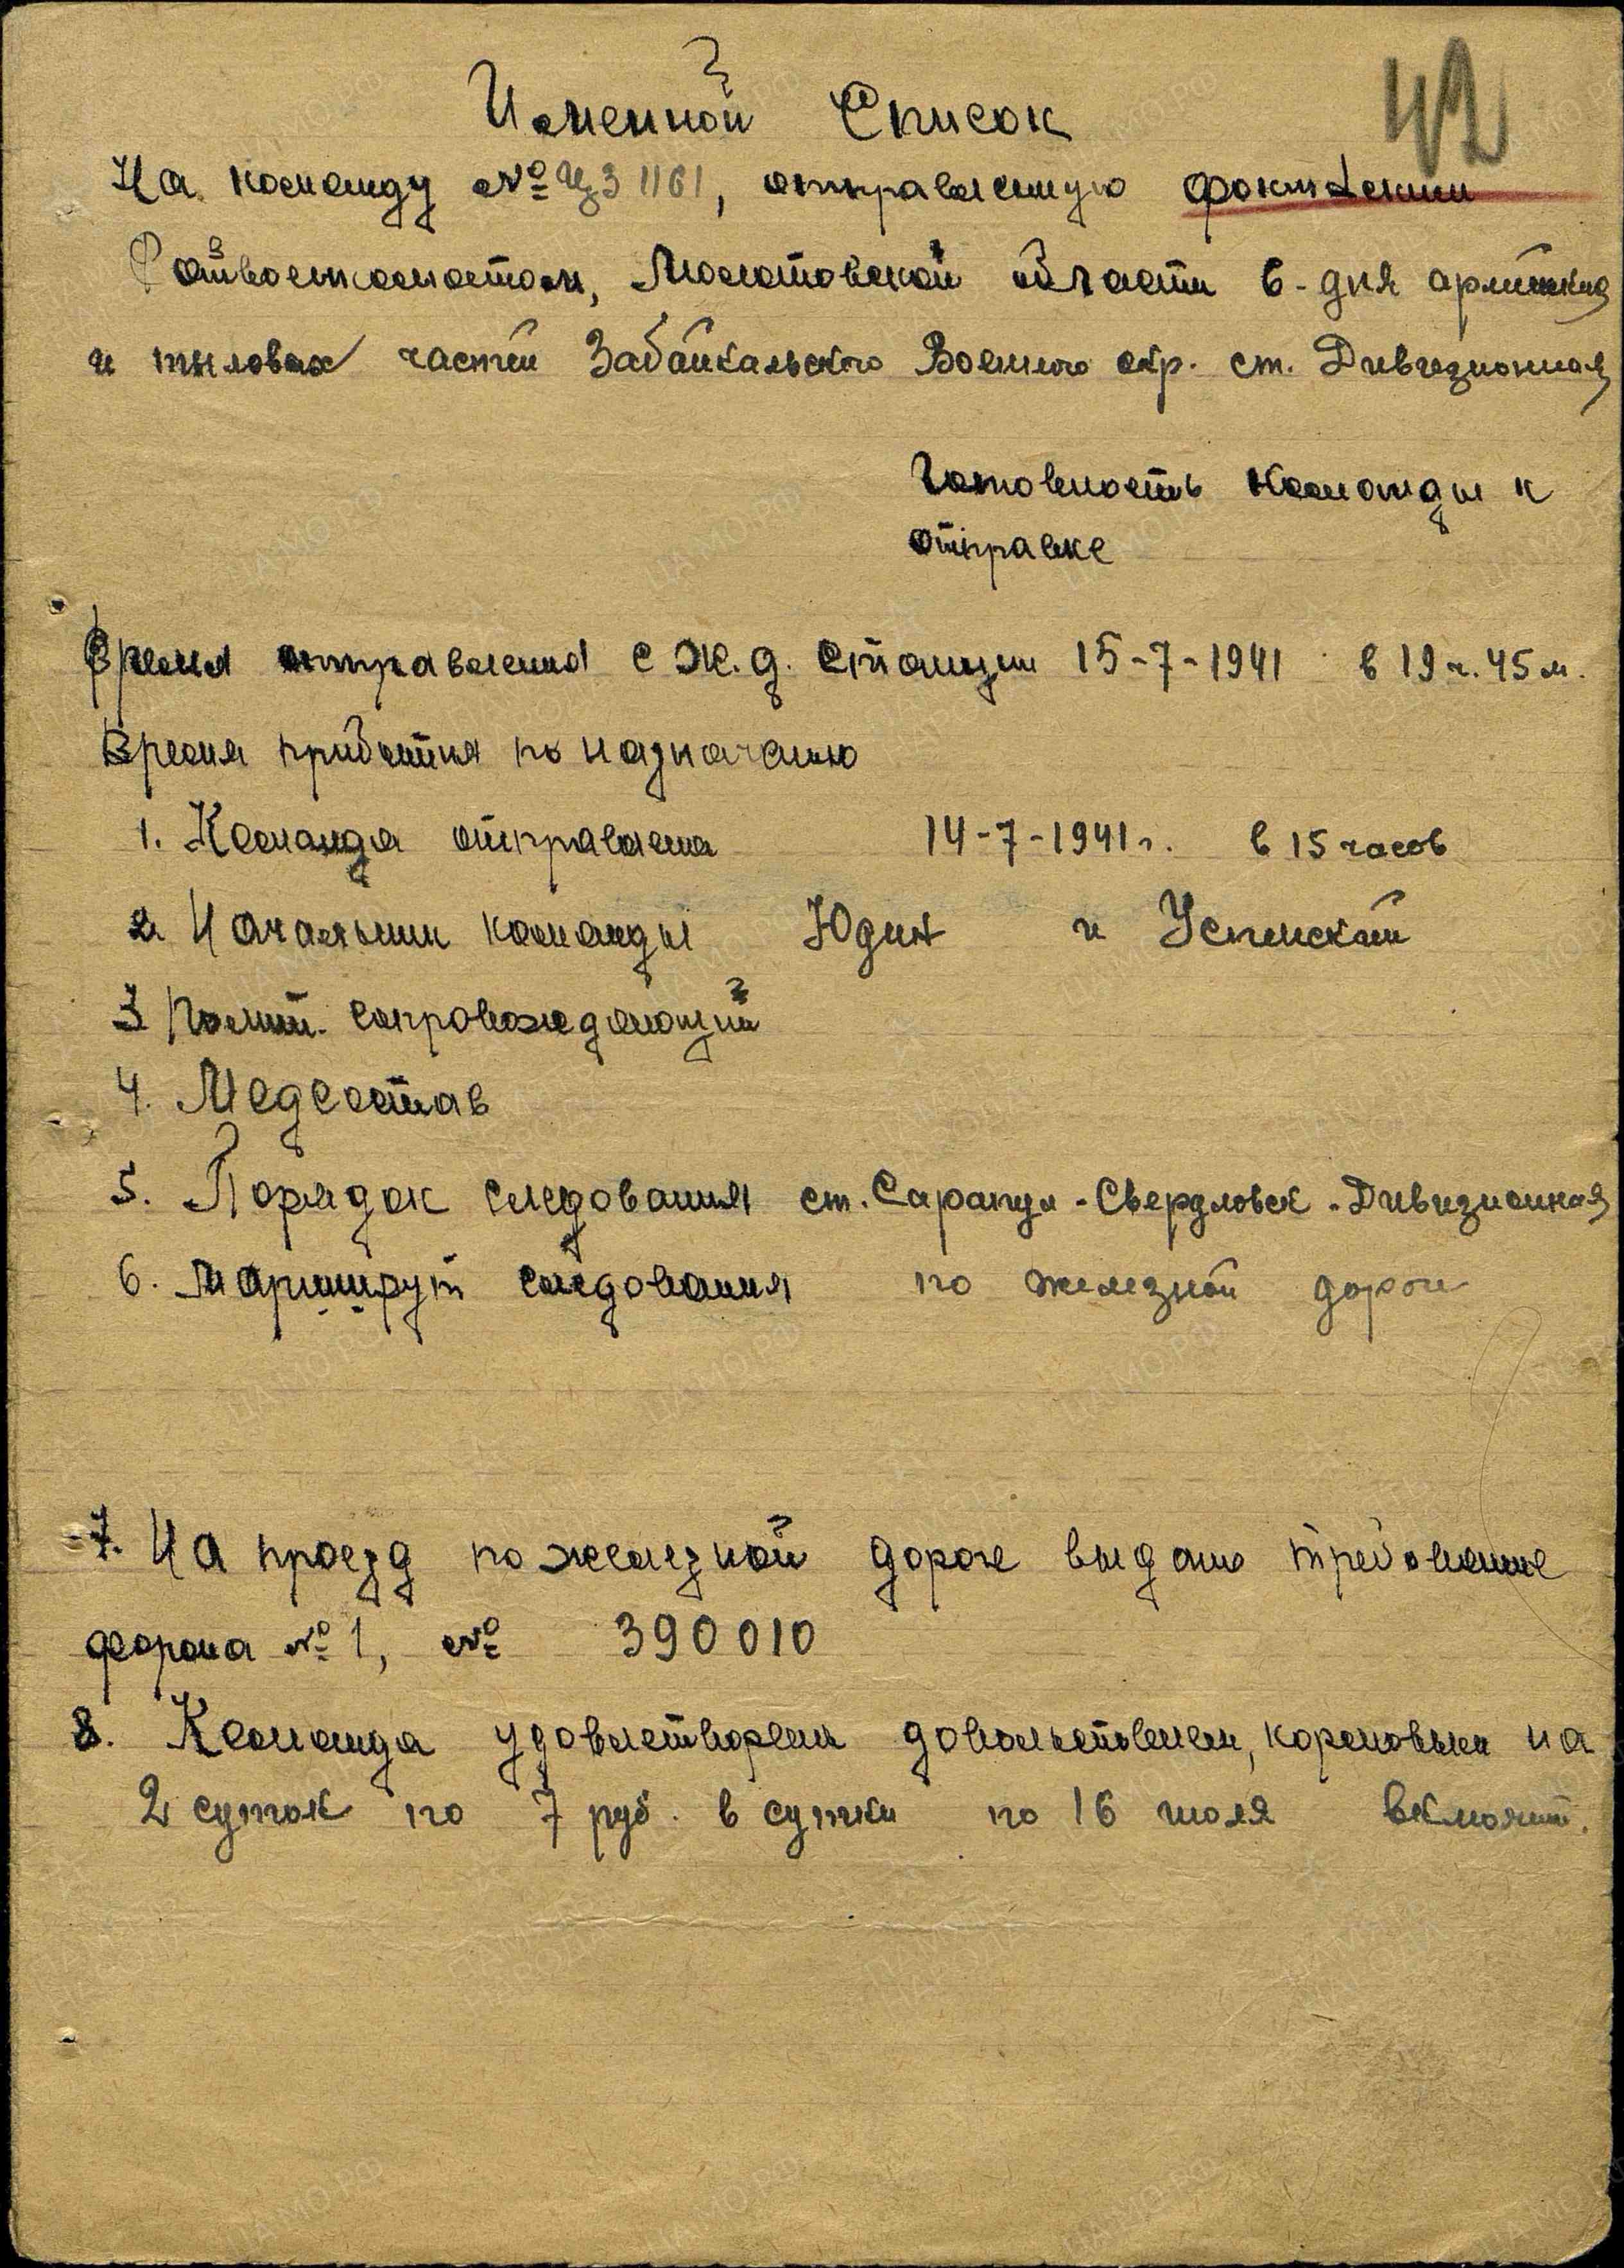 42
Именной Список
На команду № ЦЗ 1161, отправленную Фокинским
Райвоенкоматом, Молотовской области 6-дня армейких
и тыловых частей Забайкальского Военного окр. ст. Дивизионная
Готовность команды к
отправке
Время отправления с ж.д. станции 15-7-1941 в 19 ч. 45 м.
Время прибытия по назначению
1. Команда отправлена 14-7-1941 г. в 15 часов
2. Начальник команды Юдин и Успенский
3 Полит. сопровождающий
4. Медсостав
5. Порядок следования ст. Сарапул - Свердловск - Дивизионная
6. Маршрут следования по железной дороге
7. На проезд по железной дороге выдано требование
форма № 1, № 390010
8. Команда удовлетворен довольствием, кормовыми на
2 суток по 7 руб. в сутки по 16 июля включит.